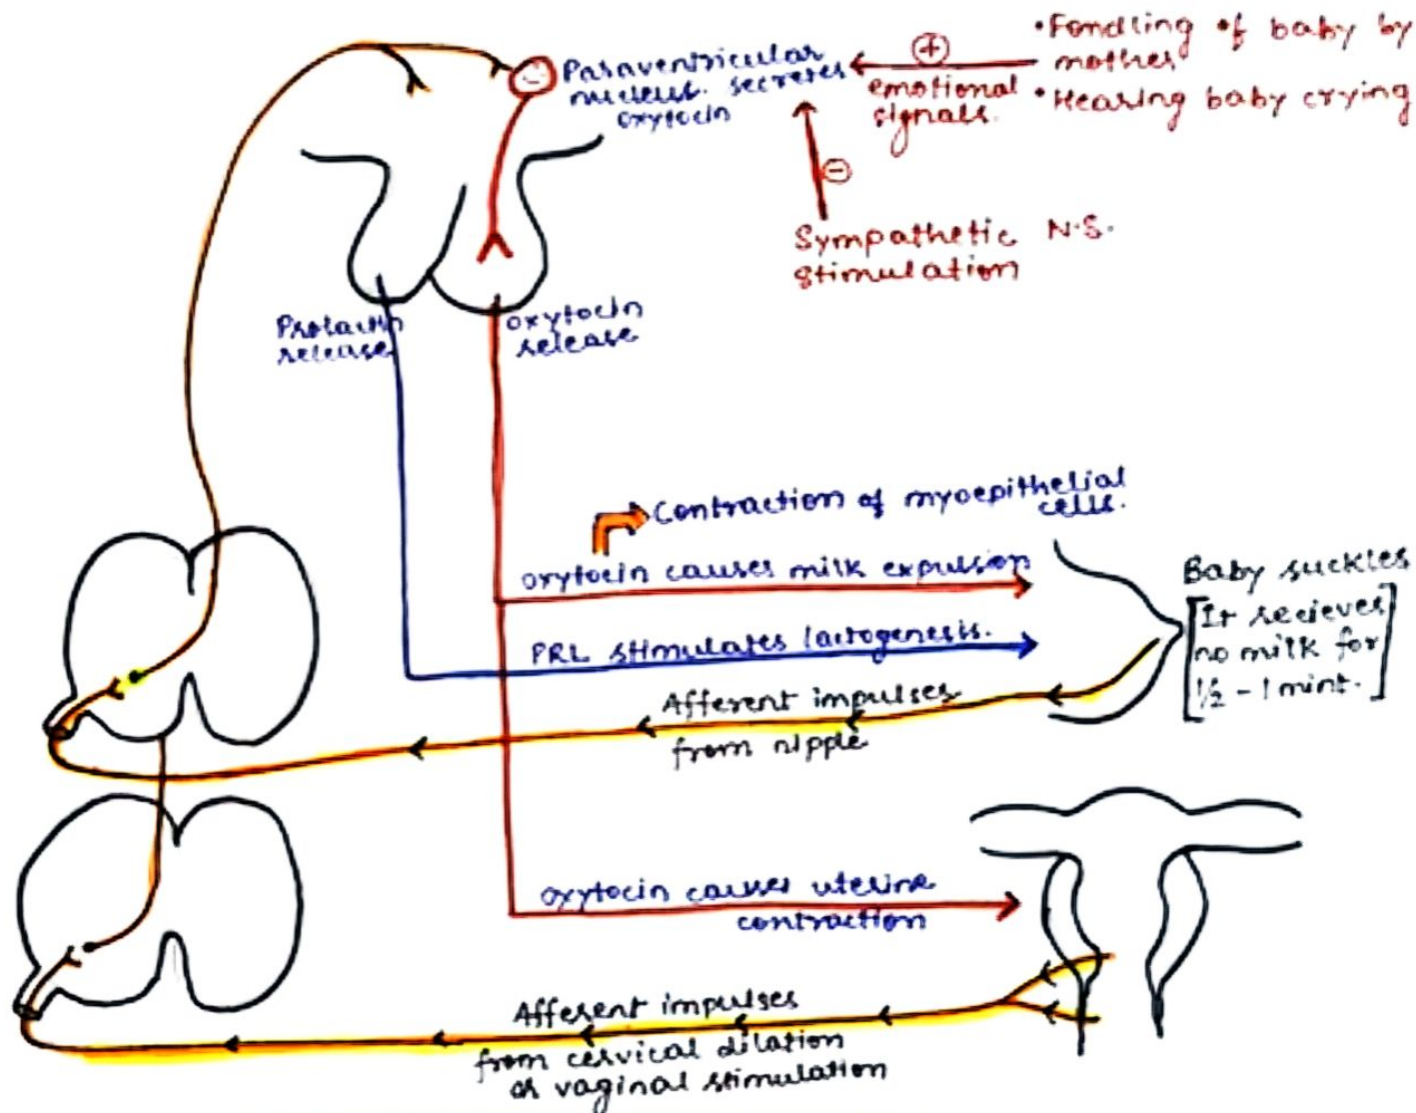 Paraventricular
nucleus. secretes
oxytocin
+
emotional
signals.
•Fondling of baby by
mother
•Hearing baby crying
-
Sympathetic N.S.
stimulation
Prolactin
release
oxytocin
release
Contraction of myoepithelial
cells.
oxytocin causes milk expulsion
PRL stimulates lactogenesis.
Afferent impulses
from nipple
Baby suckles
[It recieves
no milk for
1/2 - 1 mint.]
oxytocin causes uterine
contraction
Afferent impulses
from cervical dilation
or vaginal stimulation